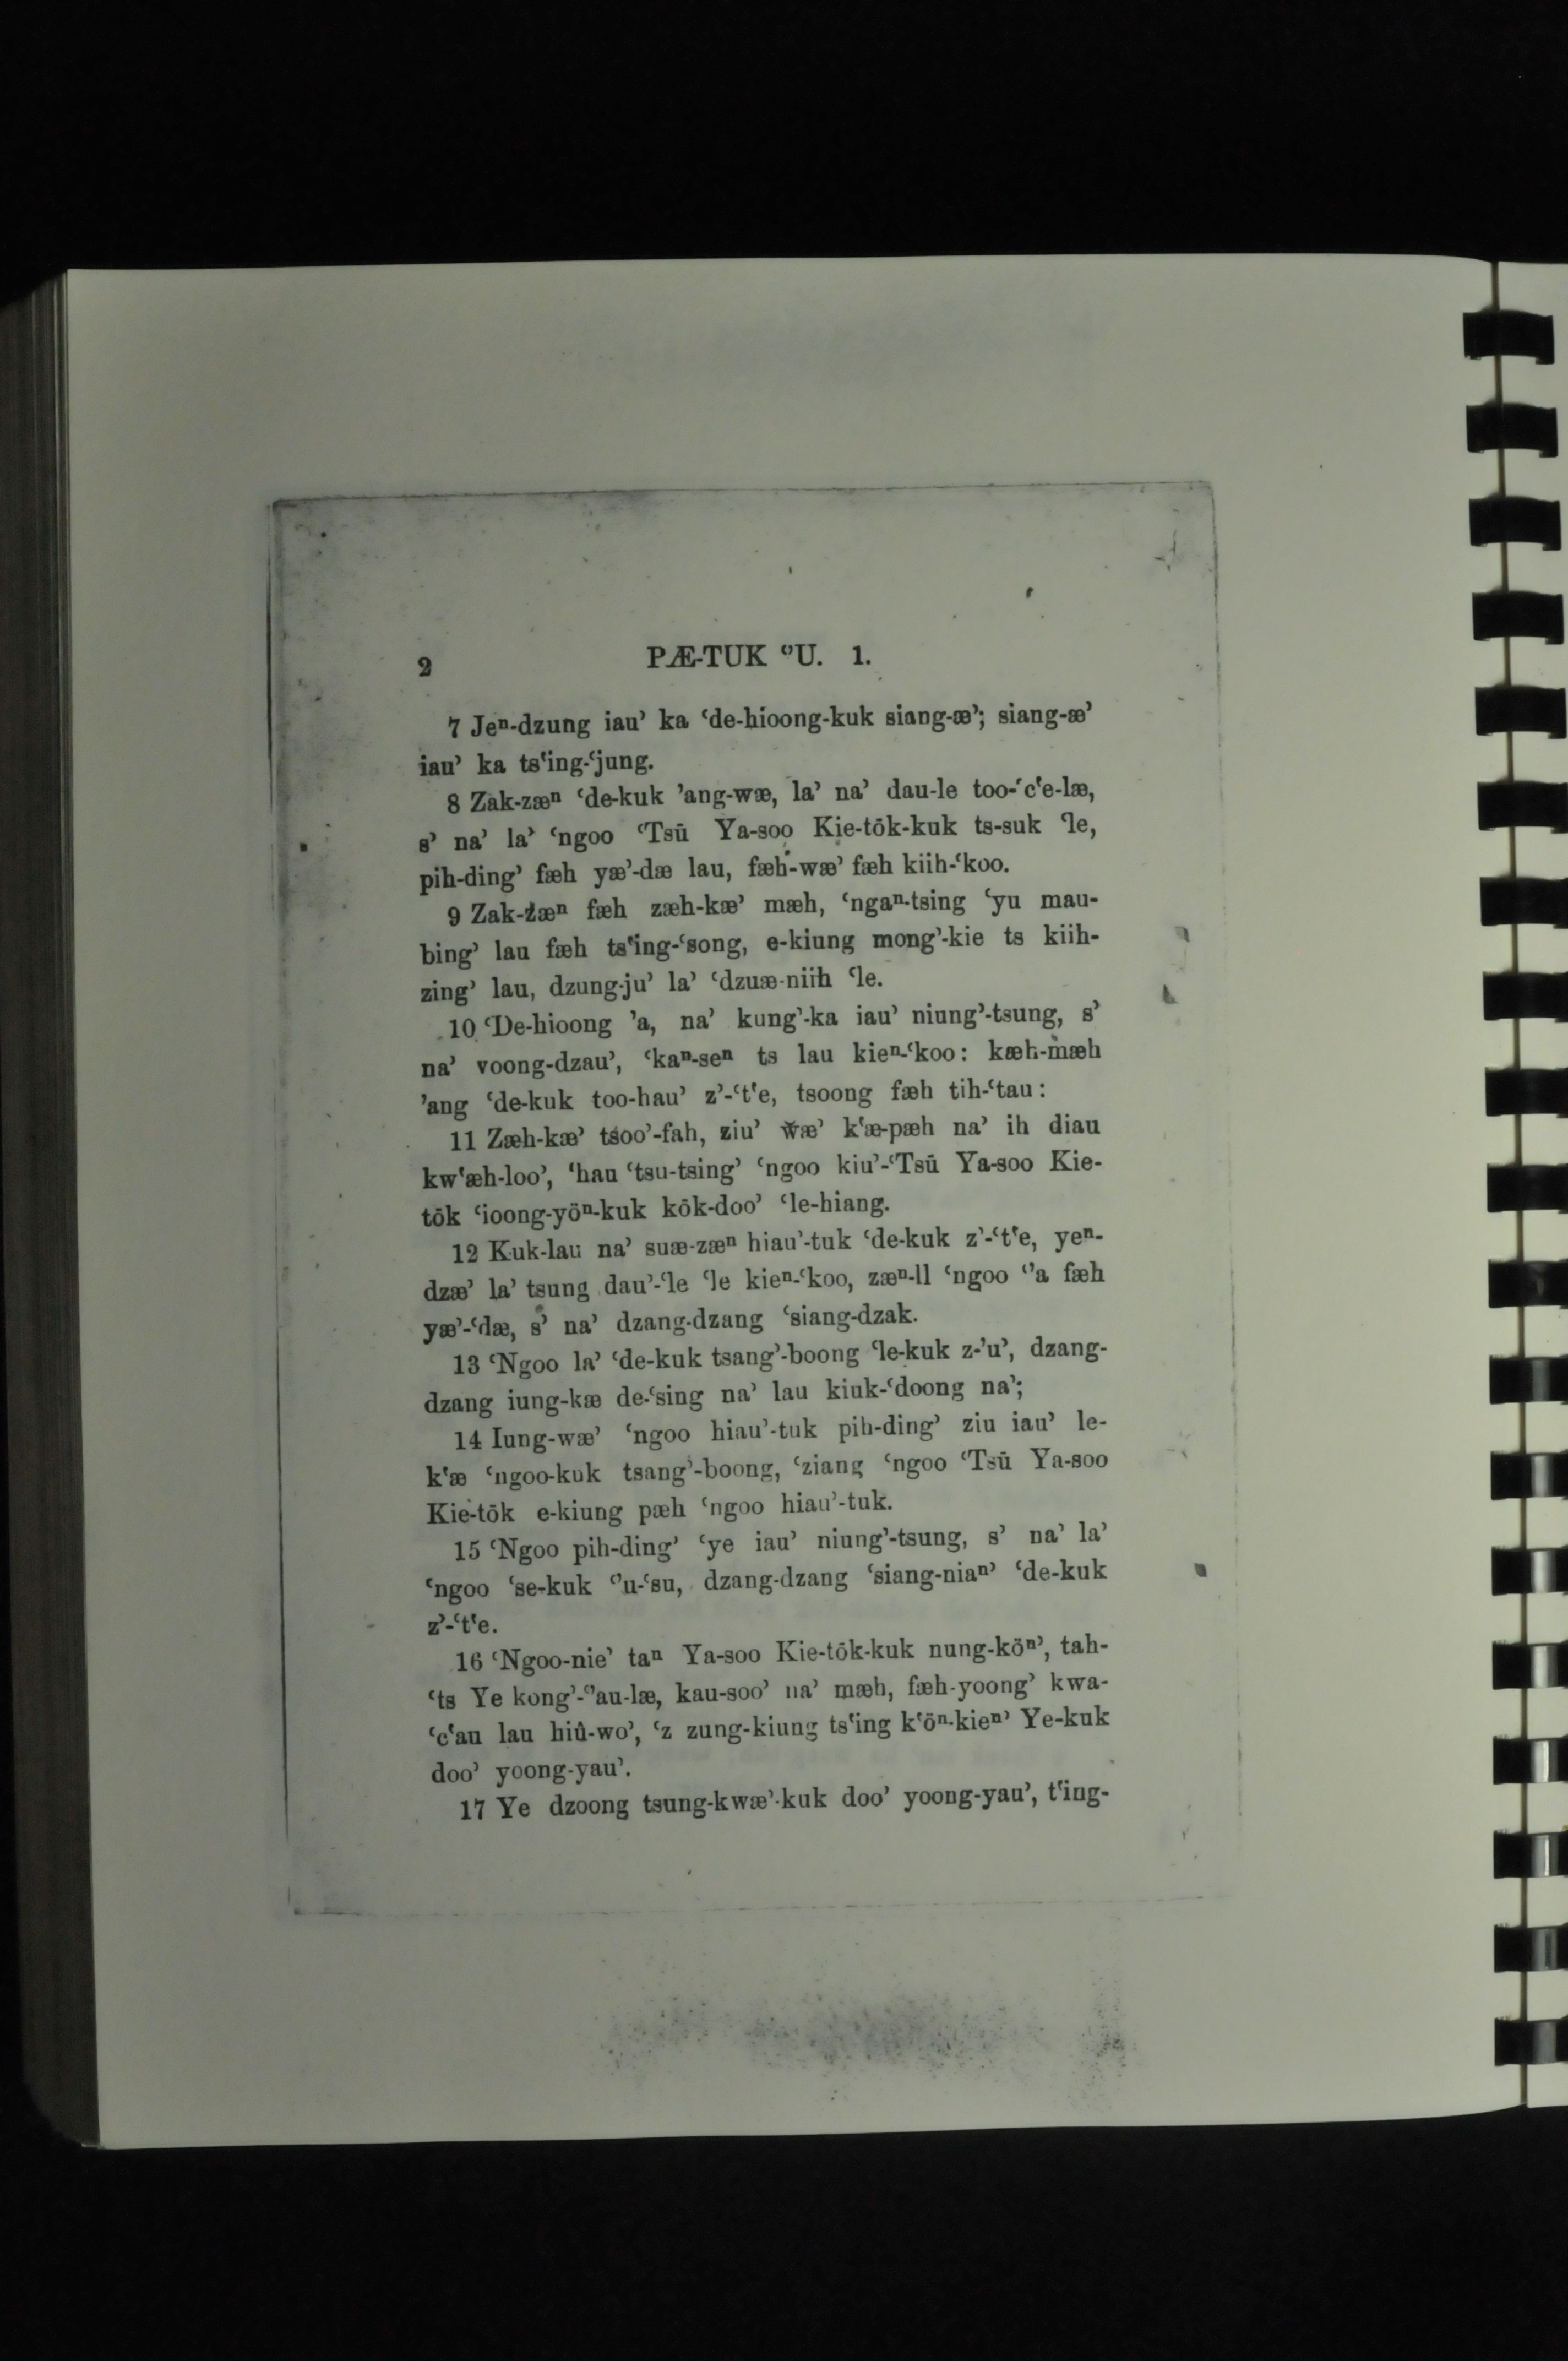 2 PÆ-TUK ʿʾU. 1.
7 Jeⁿ-dzung iauʾ ka ʿde-hioong-kuk siang-æʾ; siang-æʾ
iauʾ ka tsʿing-ʿjung.
8 Zak-zæⁿ ʿde-kuk ʾang-wæ, laʾ naʾ dau-le too-ʿcʿe-læ,
sʾ naʾ laʾ ʿngoo ʿTsū Ya-soo Kie-tōk-kuk ts-suk ʿle,
pih-dingʾ fæh yæʾ-dæ lau, fæh-wæʾ fæh kiih-ʿkoo.
9 Zak-zæⁿ fæh zæh-kæʾ mæh, ʿngaⁿ-tsing ʿyu mau-
bingʾ lau fæh tsʿing-ʿsong, e-kiung mongʾ-kie ts kiih-
zingʾ lau, dzung-juʾ laʾ ʿdzuæ-niih ʿle.
10 ʿDe-hioong ʾa, naʾ kungʾ-ka iauʾ niungʾ-tsung, sʾ
naʾ voong-dzauʾ, ʿkaⁿ-seⁿ ts lau kieⁿ-ʿkoo: kæh-mæh
ʾang ʿde-kuk too-hauʾ zʾ-ʿtʿe, tsoong fæh tih-ʿtau:
11 Zæh-kæʾ tsooʾ-fah, ziuʾ wæʾ kʿæ-pæh naʾ ih diau
kwʿæh-looʾ, ʿhau ʿtsu-tsingʾ ʿngoo kiuʾ-ʿTsū Ya-soo Kie-
tōk ʿioong-yöⁿ-kuk kōk-dooʾ ʿle-hiang.
12 Kuk-lau naʾ suæ-zæⁿ hiauʾ-tuk ʿde-kuk zʾ-ʿtʿe, yeⁿ-
dzæʾ laʾ tsung dauʾ-ʿle ʿle kieⁿ-ʿkoo, zæⁿ-ll ʿngoo ʿʾa fæh
yæʾ-ʿdæ, sʾ naʾ dzang-dzang ʿsiang-dzak.
13 ʿNgoo laʾ ʿde-kuk tsangʾ-boong ʿle-kuk z-ʾuʾ, dzang-
dzang iung-kæ de-ʿsing naʾ lau kiuk-ʿdoong naʾ;
14 Iung-wæʾ ʿngoo hiauʾ-tuk pih-dingʾ ziu iauʾ le-
kʿæ ʿngoo-kuk tsangʾ-boong, ʿziang ʿngoo ʿTsū Ya-soo
Kie-tōk e-kiung pæh ʿngoo hiauʾ-tuk.
15 ʿNgoo pih-dingʾ ʿye iauʾ niungʾ-tsung, sʾ naʾ laʾ
ʿngoo ʿse-kuk ʿʾu-ʿsu, dzang-dzang ʿsiang-niaⁿʾ ʿde-kuk
zʾ-ʿtʿe.
16 ʿNgoo-nieʾ taⁿ Ya-soo Kie-tōk-kuk nung-köⁿʾ, tah-
ʿts Ye kongʾ-ʿʾau-læ, kau-sooʾ naʾ mæh, fæh-yoongʾ kwa-
ʿcʿau lau hiû-woʾ, ʿz zung-kiung tsʿing kʿöⁿ-kieⁿʾ Ye-kuk
dooʾ yoong-yauʾ.
17 Ye dzoong tsung-kwæʾ-kuk dooʾ yoong-yauʾ, tʿing-